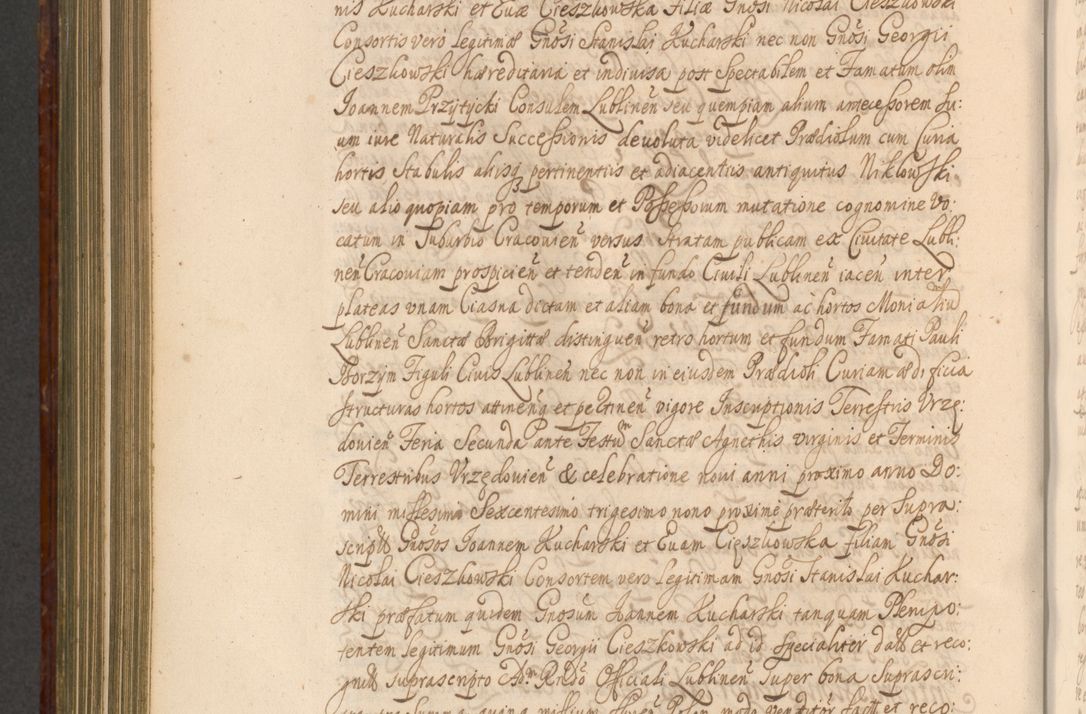 nis Kucharski et Euæ Cieszkowska Filiæ Gnosi Nicolai Cieszkowski
Consortis vero legitimæ Gnosi Stanislai Kucharski nec non Gnosi Georgii
Cieszkowski hæreditaria et indiuisa post Spectabilem et Famatum olim
Joannem Przytycki Consulem Lublineñ seu quempiam alium antecessorem su:
um iure Naturalis Successionis deuoluta videlicet Prædiolum cum Curia
hortis Stabulis aliisq pertinentiis et adiacentiis antiquitus Niklowski
seu alio quopiam pro temporum et Possessorum mutatione cognomine Vo:
catum in Suburbio Cracouieñ versus Stratam publicam ex Ciuitate Lubli:
neñ Cracouiam prospicieñ et tendeñ in fundo Ciuili Lublineñ iaceñ inter
plateas vnam Ciasna dictam et aliam bona et fundum ac hortos Monialiu
Lublineñ Sanctæ Brigittæ distingueñ retro hortum et fundum Famati Pauli
Borzym Figuli Ciuis Lublineñ nec non in eiusdem Prædioli Curiam ædificia
structuras hortos attineñ et ptineñ vigore Inscriptionis Terrestris Vrzę:
douieñ Feria Secunda ante Festum Sanctæ Agnethis virginis et Terminis
Terrestribus Vrzędouieñ & celebratione noui anni proximo anno Do:
mini millesimo Sexcentesimo trigesimo nono proxime præterito per supra:
scriptos Gnosos Joannem Kucharski et Euam Cieszkowska filiam Gnosi
Nicolai Cieszkowski Consortem vero legitimam Gnosi Stanislai Kuchar:
ski præfatum quidem Gnosum Joannem Kucharski tanquam Plenipo:
tentem legitimum Gnosi Georgii Cieszkowski ad id specialiter datt et reco:
gnitt suprascripto Rndo Officiali Lublineñ super bona suprascri: